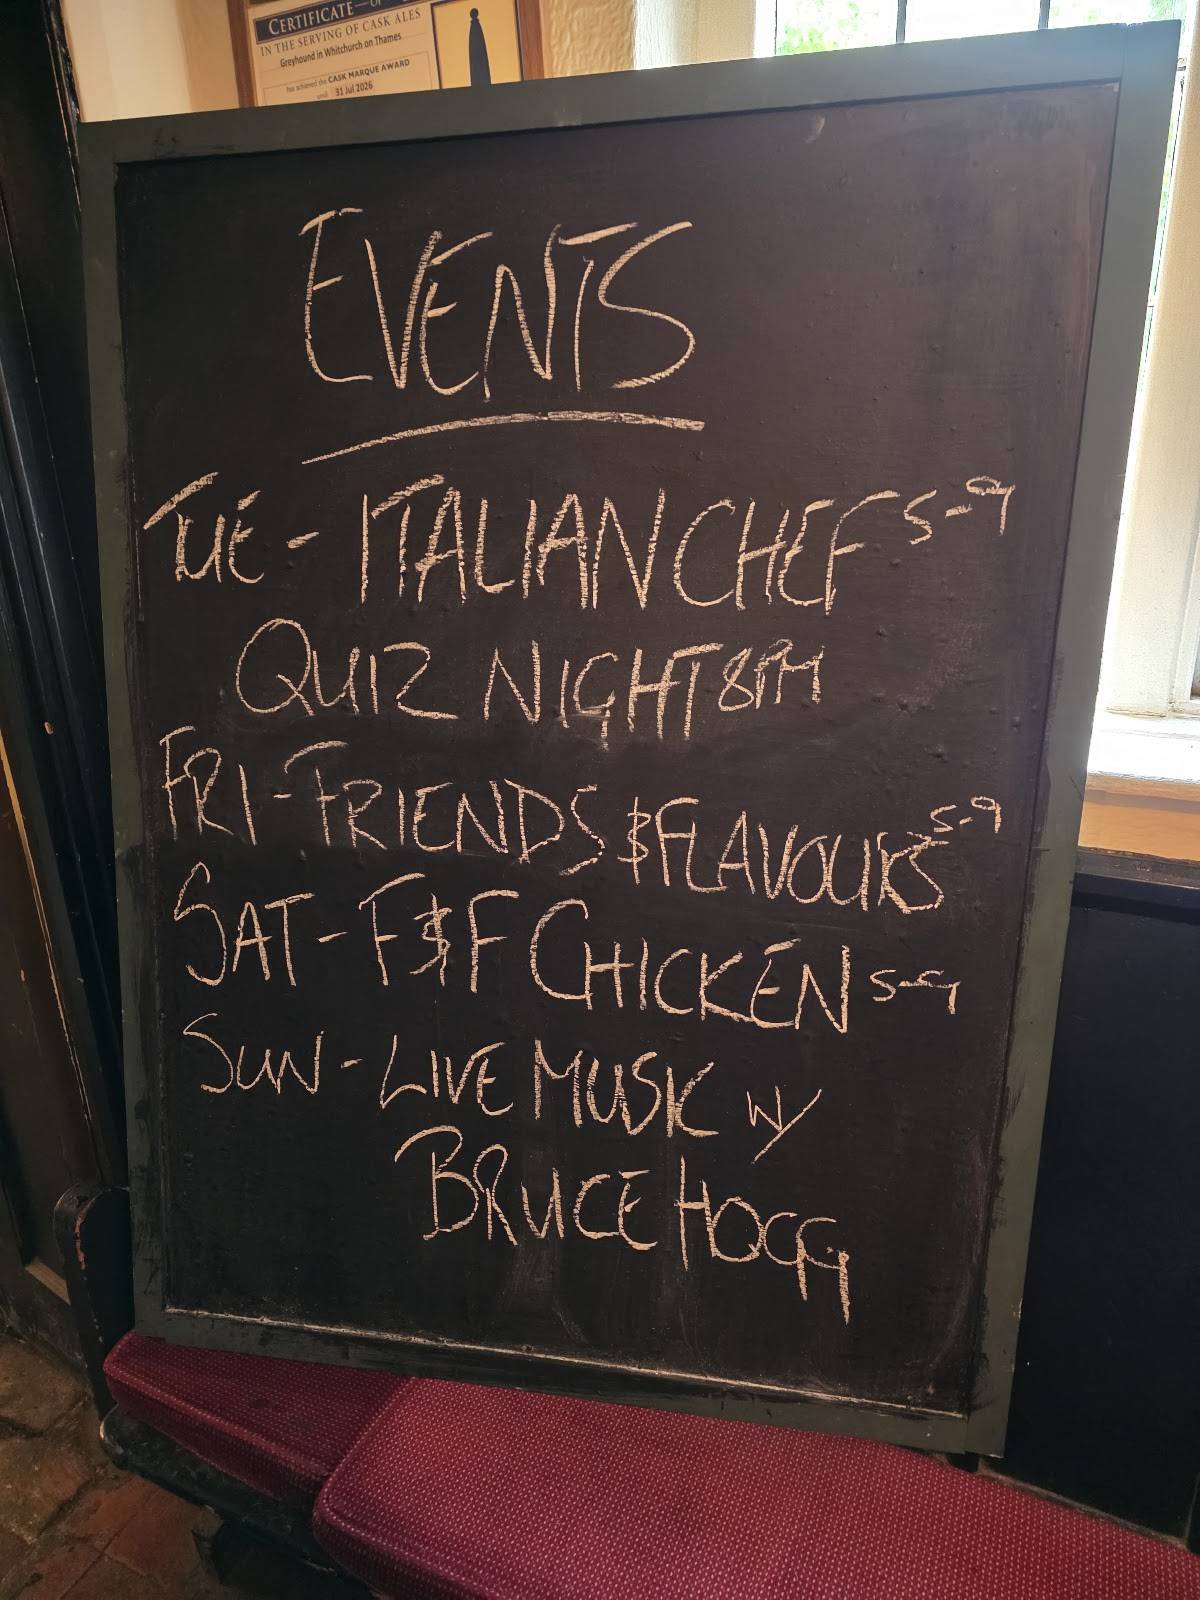 CERTIFICATE OF
IN THE SERVING OF CASK ALES
Greyhound in Whitchurch on Thames
has achieved the CASK MARQUE AWARD
until 31 Jul 2026
EVENTS
TUE - ITALIAN CHEF 5-9
QUIZ NIGHT 8PM
FRI - FRIENDS & FLAVOURS 5-9
SAT - F&F CHICKEN 5-9
SUN - LIVE MUSIC W/
BRUCE HOGG